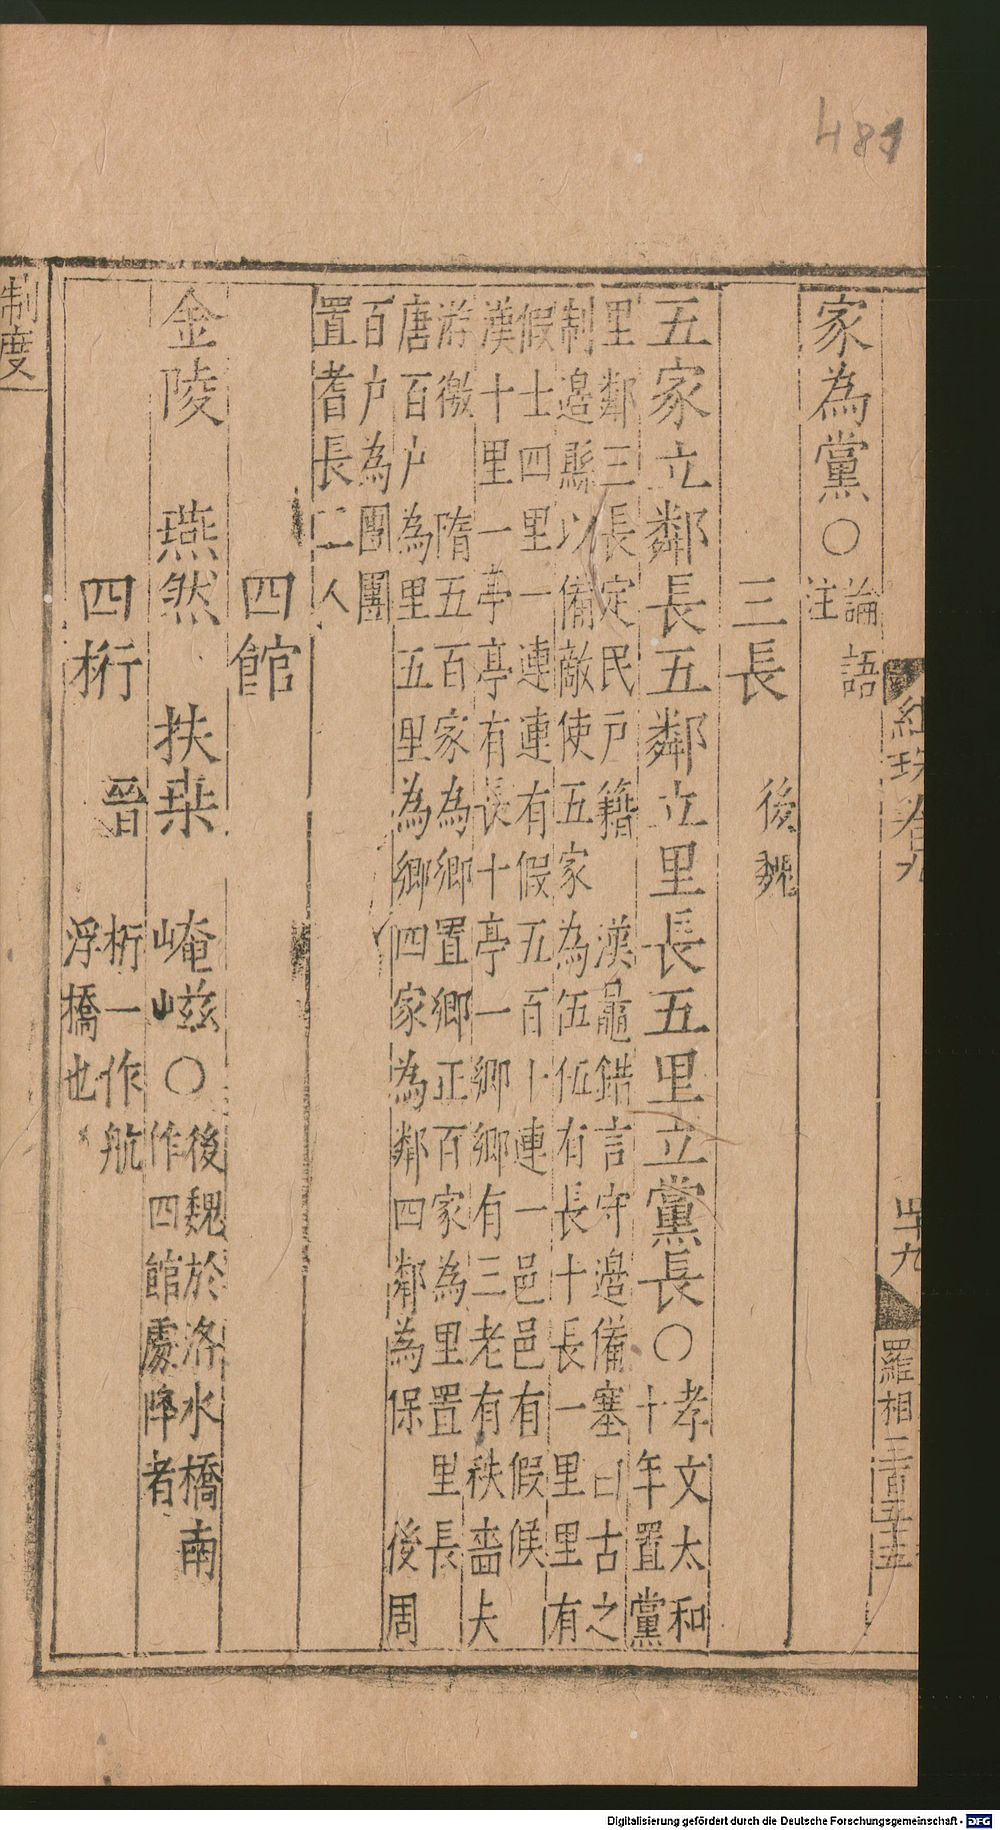 481
紺珠卷九
四十九
羅相三百五十五
家為黨○論語
注
三長　後魏
五家立鄰長五鄰立里長五里立黨長○孝文太和
十年置黨
里鄰三長定民戶籍　漢鼂錯言守邉備塞曰古之
制邉縣以備敵使五家為伍伍有長十長一里里有
假士四里一連連有假五百十連一邑邑有假候
漢十里一亭亭有長十亭一鄉鄉有三老有秩嗇夫
游徼　隋五百家為鄉置鄉正百家為里置里長
唐百户為里五里為鄉四家為鄰四鄰為保　後周
百户為團團
置耆長二人
四館
金陵　燕然　扶桒　崦嵫○後魏於洛水橋南
作四館處降者
四桁　晉　桁一作航
浮橋也
制度
Digitalisierung gefördert durch die Deutsche Forschungsgemeinschaft - DFG